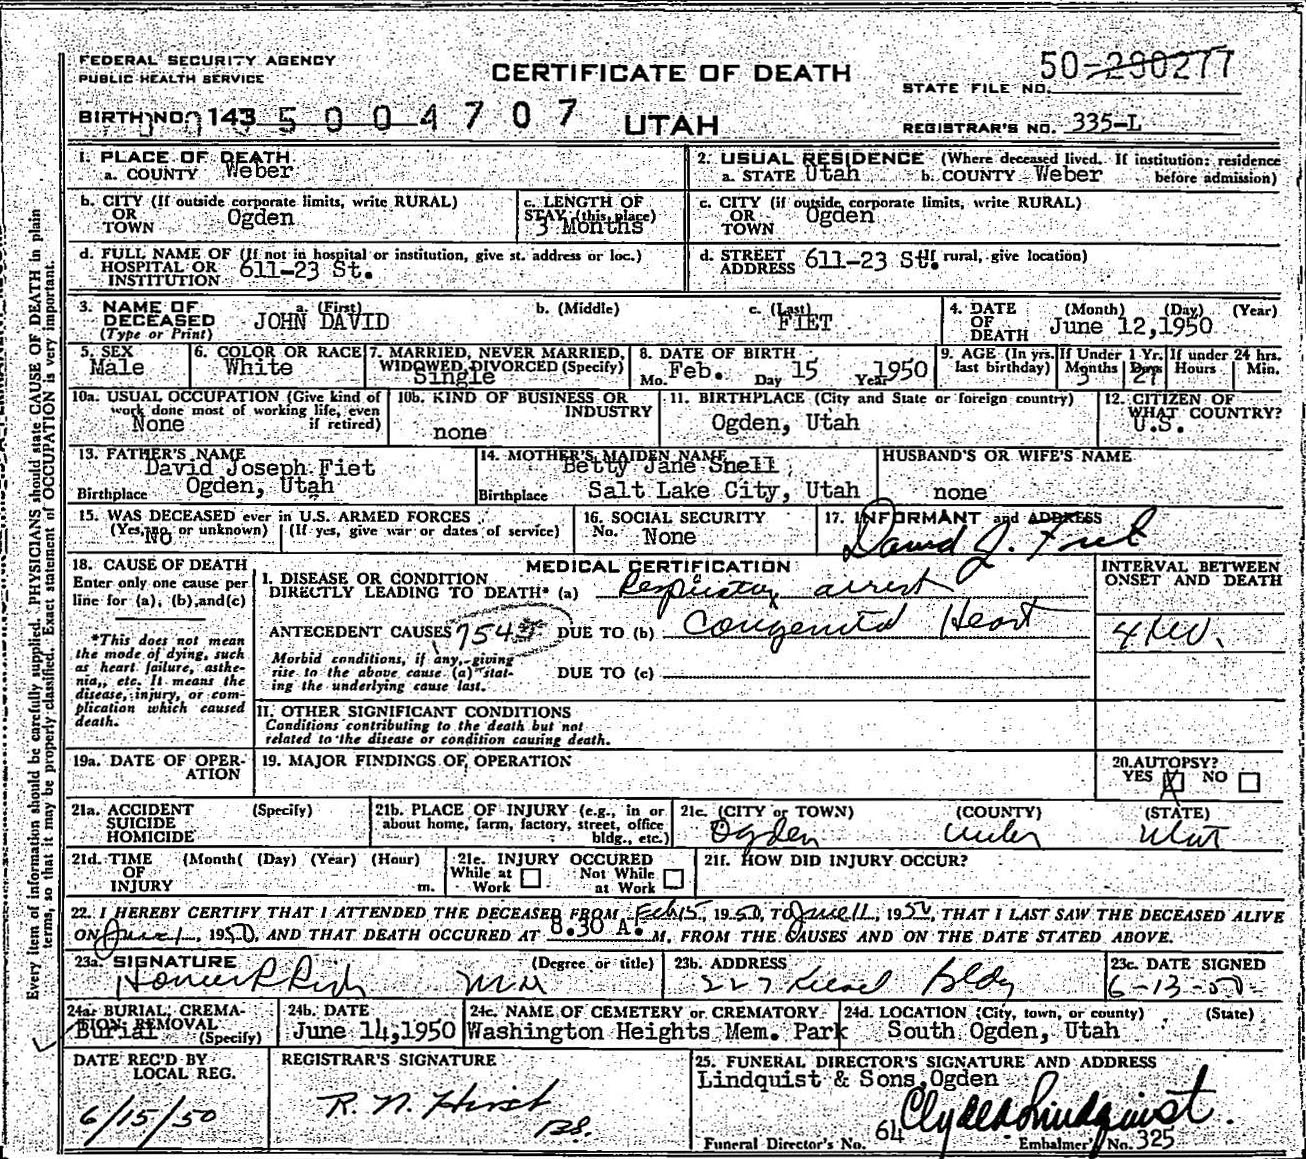 FEDERAL SECURITY AGENCY
PUBLIC HEALTH SERVICE
CERTIFICATE OF DEATH
STATE FILE NO. 50-290277
BIRTH NO. 143 5004707
UTAH
REGISTRAR'S NO. 335-L
1. PLACE OF DEATH
a. COUNTY Weber
2. USUAL RESIDENCE (Where deceased lived. If institution: residence before admission)
a. STATE Utah b. COUNTY Weber
b. CITY (If outside corporate limits, write RURAL)
OR TOWN Ogden
c. LENGTH OF STAY (this place)
3 Months
c. CITY (if outside corporate limits, write RURAL)
OR TOWN Ogden
d. FULL NAME OF (If not in hospital or institution, give st. address or loc.)
HOSPITAL OR INSTITUTION 611-23 St.
d. STREET ADDRESS 611-23 St. (If rural, give location)
3. NAME OF DECEASED (Type or Print)
a. (First) b. (Middle) c. (Last)
JOHN DAVID FIET
4. DATE OF DEATH (Month) (Day) (Year)
June 12,1950
5. SEX
Male
6. COLOR OR RACE
White
7. MARRIED, NEVER MARRIED, WIDOWED, DIVORCED (Specify)
Single
8. DATE OF BIRTH
Mo. Feb. Day 15 Year 1950
9. AGE (In yrs. last birthday) If Under 1 Yr. Months Days If under 24 hrs. Hours Min.
3
10a. USUAL OCCUPATION (Give kind of work done most of working life, even if retired)
None
10b. KIND OF BUSINESS OR INDUSTRY
none
11. BIRTHPLACE (City and State or foreign country)
Ogden, Utah
12. CITIZEN OF WHAT COUNTRY?
U.S.
13. FATHER'S NAME
David Joseph Fiet
Birthplace Ogden, Utah
14. MOTHER'S MAIDEN NAME
Betty Jane Snell
Birthplace Salt Lake City, Utah
HUSBAND'S OR WIFE'S NAME
none
15. WAS DECEASED ever in U.S. ARMED FORCES
(Yes, no or unknown) (If yes, give war or dates of service)
No
16. SOCIAL SECURITY No.
None
17. INFORMANT and ADDRESS
David J. Fiet
18. CAUSE OF DEATH
Enter only one cause per line for (a), (b), and (c)
*This does not mean the mode of dying, such as heart failure, asthenia, etc. It means the disease, injury, or complication which caused death.
MEDICAL CERTIFICATION
I. DISEASE OR CONDITION
DIRECTLY LEADING TO DEATH* (a) Respiratory arrest
ANTECEDENT CAUSES 7545 DUE TO (b) Congenital Heart
Morbid conditions, if any, giving rise to the above cause (a) stating the underlying cause last.
DUE TO (c)
INTERVAL BETWEEN ONSET AND DEATH
II. OTHER SIGNIFICANT CONDITIONS
Conditions contributing to the death but not related to the disease or condition causing death.
19a. DATE OF OPERATION
19. MAJOR FINDINGS OF OPERATION
20. AUTOPSY?
YES X NO
21a. ACCIDENT SUICIDE HOMICIDE (Specify)
21b. PLACE OF INJURY (e.g., in or about home, farm, factory, street, office bldg., etc.)
21c. (CITY or TOWN) (COUNTY) (STATE)
Ogden Weber Utah
21d. TIME OF INJURY (Month( (Day) (Year) (Hour) m.
21e. INJURY OCCURED
While at Work Not While at Work
21f. HOW DID INJURY OCCUR?
22. I HEREBY CERTIFY THAT I ATTENDED THE DECEASED FROM Feb 15, 1950, TO June 11, 1950, THAT I LAST SAW THE DECEASED ALIVE
ON June 1, 1950, AND THAT DEATH OCCURED AT 8.30 A. M, FROM THE CAUSES AND ON THE DATE STATED ABOVE.
23a. SIGNATURE (Degree or title)
Homer R Rich MD
23b. ADDRESS
227 Kiesel Bldg
23c. DATE SIGNED
6-13-50
24a. BURIAL, CREMATION, REMOVAL (Specify)
Burial
24b. DATE
June 14,1950
24c. NAME OF CEMETERY or CREMATORY
Washington Heights Mem. Park
24d. LOCATION (City, town, or county) (State)
South Ogden, Utah
DATE REC'D BY LOCAL REG.
6/15/50
REGISTRAR'S SIGNATURE
R. N. Hirst
25. FUNERAL DIRECTOR'S SIGNATURE AND ADDRESS
Lindquist & Sons, Ogden
Clyde Lindquist.
Funeral Director's No. 64 Embalmer's No. 325
Every item of information should be carefully supplied. PHYSICIANS should state CAUSE OF DEATH in plain
terms, so that it may be properly classified. Exact statement of OCCUPATION is very important.